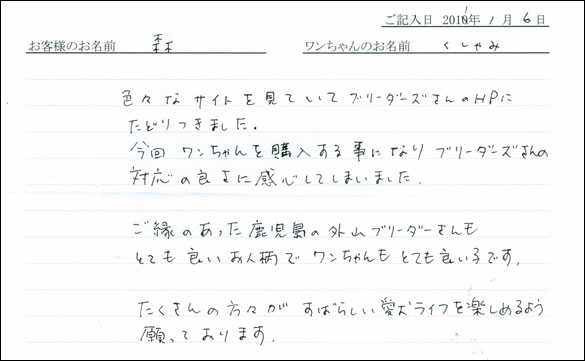 ご記入日 2011年 1月 6日
お客様のお名前 森 ワンちゃんのお名前 くしゃみ
色々なサイトを見ていてブリーダーズさんのHPに
たどりつきました。
今回ワンちゃんを購入する事になりブリーダーズさんの
対応の良さに感心してしまいました。
ご縁のあった鹿児島の外山ブリーダーさんも
とても良いお人柄でワンちゃんもとても良い子です。
たくさんの方々がすばらしい愛犬ライフを楽しめるよう
願っております。